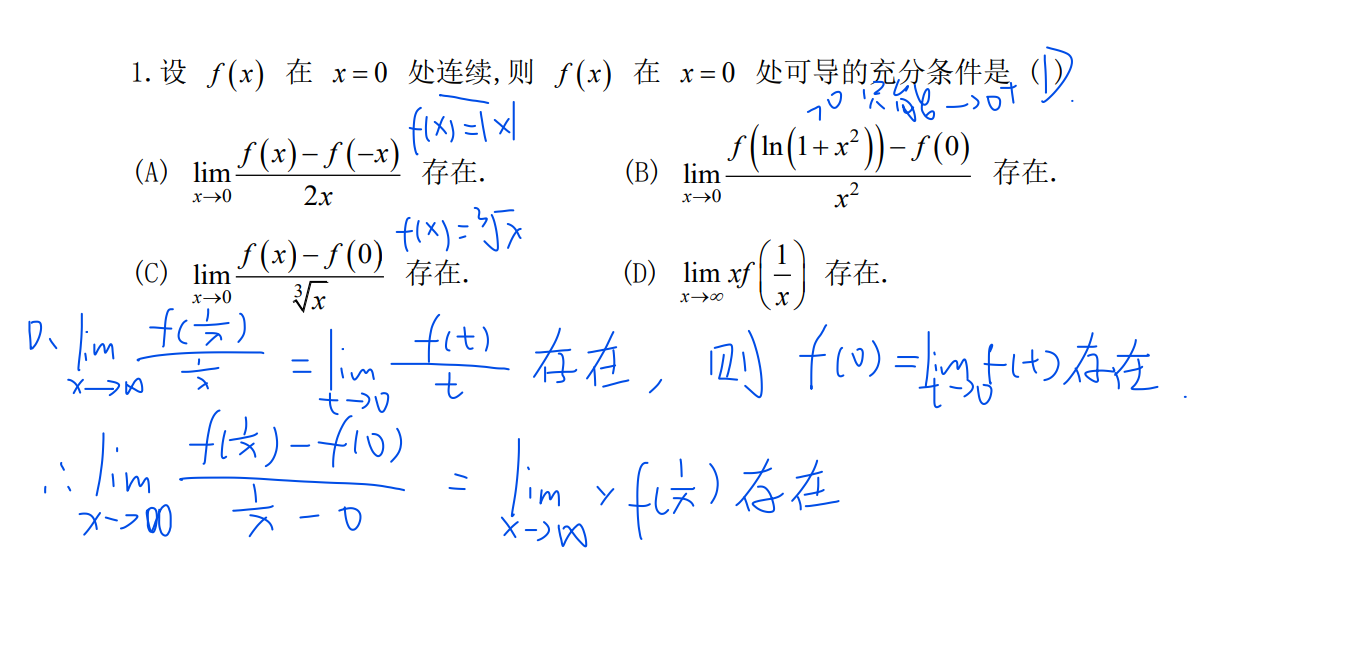 1. 设 f(x) 在 x=0 处连续,则 f(x) 在 x=0 处可导的充分条件是 (D).
f(x)=|x|
>0 只能 →0⁺
(A) lim_{x→0} (f(x)-f(-x))/(2x) 存在.
(B) lim_{x→0} (f(ln(1+x²))-f(0))/x² 存在.
f(x)=∛x
(C) lim_{x→0} (f(x)-f(0))/∛x 存在.
(D) lim_{x→∞} xf(1/x) 存在.
D、lim_{x→∞} f(1/x)/(1/x) = lim_{t→0} f(t)/t 存在, 则 f(0)=lim_{t→0} f(t) 存在.
∴ lim_{x→∞} (f(1/x)-f(0))/(1/x - 0) = lim_{x→∞} x f(1/x) 存在